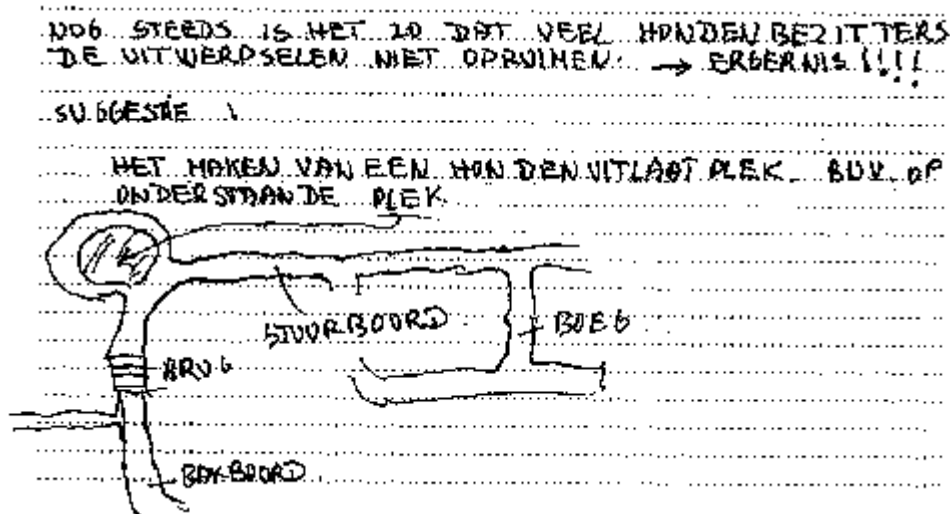 NOG STEEDS IS HET ZO DAT VEEL HONDENBEZITTERS
DE UITWERPSELEN NIET OPRUIMEN. → ERGERNIS!!!!
SUGGESTIE :
HET MAKEN VAN EEN HONDENUITLAATPLEK BIJV. OP
ONDERSTAANDE PLEK
STUURBOORD
BOEG
BRUG
BAKBOORD